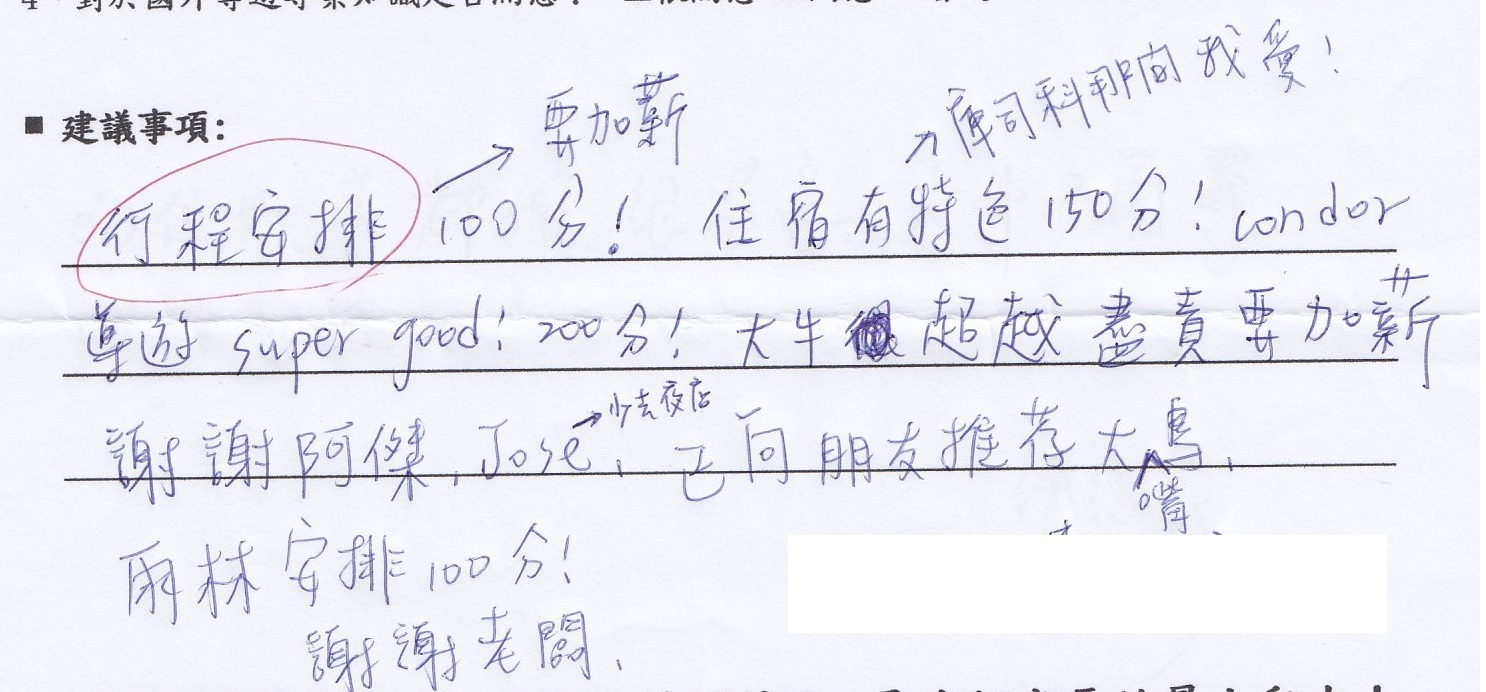 ■ 建議事項:
要加薪
庫司科那間我愛!
行程安排 → 100分! 住宿有特色150分! condor
導遊 super good! 200分! 大牛超越盡責要加薪
→少去夜店
謝謝阿傑, Jose, 已向朋友推荐大嘴鳥,
雨林安排100分!
謝謝老闆,